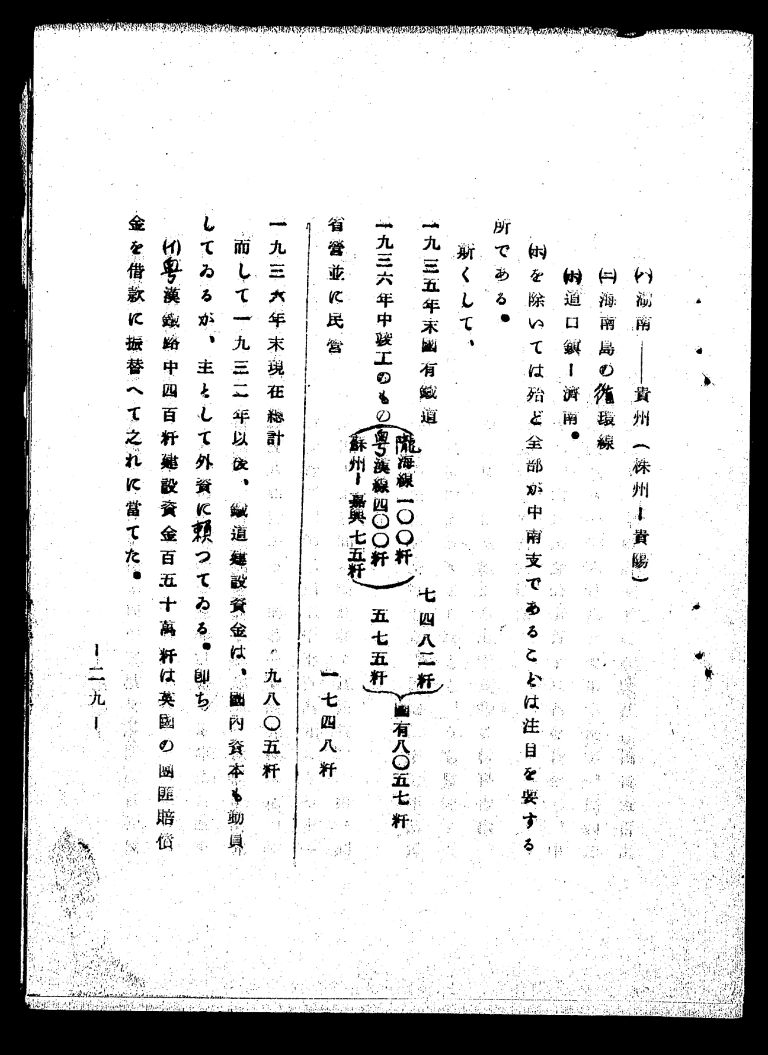 ㈧湖南――貴州（株州ー貴陽）
㈡海南島の循環線
㈭道口鎮ー濟南。
㈭を除いては殆ど全部が中南支であることは注目を要する
所である。
斯くして、
一九三五年末國有鐵道　七四八二粁
一九三六年中竣工のもの（隴海線一〇〇粁
粤漢線四〇〇粁
蘇州ー嘉興七五粁）　五七五粁
國有八〇五七粁
省營並に民營　一七四八粁
一九三六年末現在總計　九八〇五粁
而して一九三二年以後、鐵道建設資金は、國內資本も動員
してゐるが、主として外資に頼つてゐる。卽ち
㈠粤漢鐵路中四百粁建設資金百五十萬粁は英國の團匪賠償
金を借款に振替へて之れに當てた。
ー二九ー